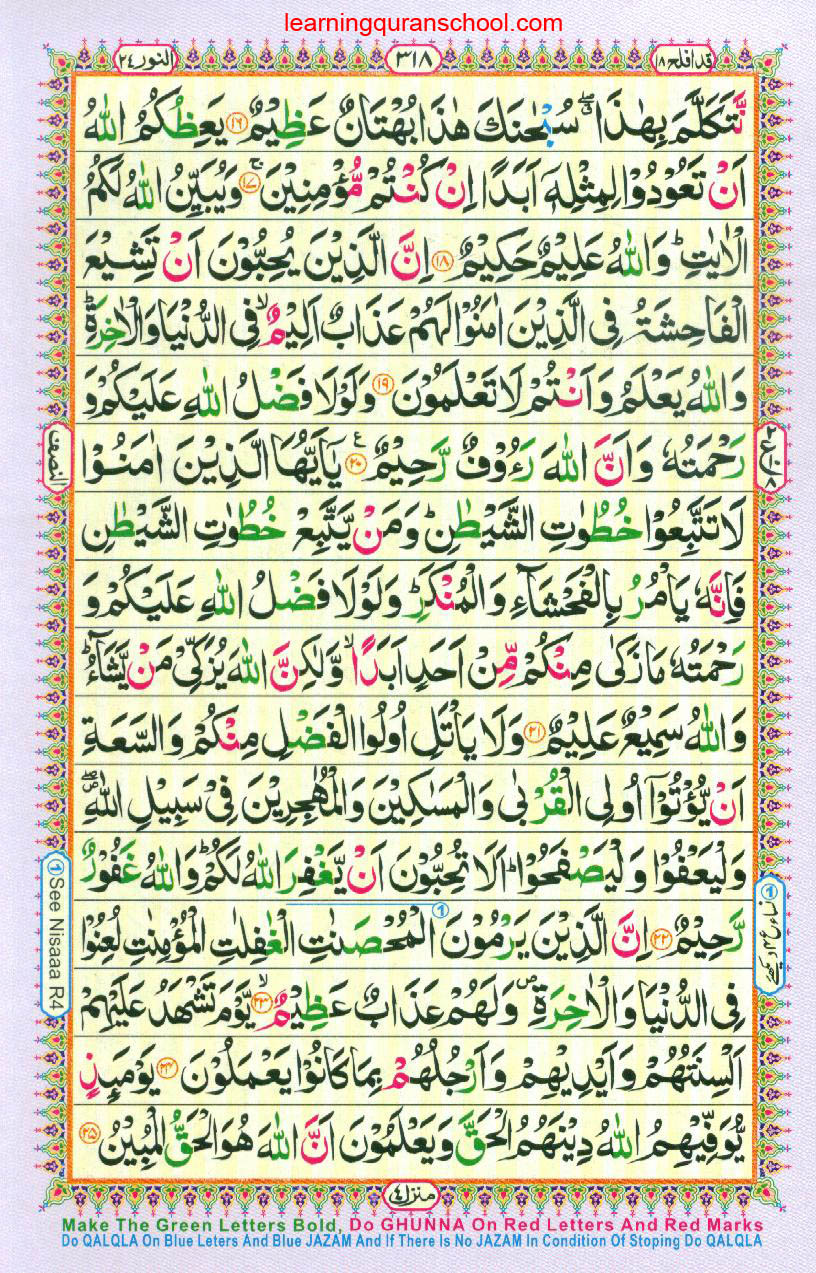 learningquranschool.com
النور ٢٤
٣١٨
قد افلح ١٨
نَّتَكَلَّمَ بِهٰذَا ۖ سُبْحٰنَكَ هٰذَا بُهْتَانٌ عَظِيْمٌ ١٦ يَعِظُكُمُ اللّٰهُ
اَنْ تَعُوْدُوْا لِمِثْلِهٖۤ اَبَدًا اِنْ كُنْتُمْ مُّؤْمِنِيْنَ ١٧ۚ وَيُبَيِّنُ اللّٰهُ لَكُمُ
الْاٰيٰتِ ؕ وَاللّٰهُ عَلِيْمٌ حَكِيْمٌ ١٨ اِنَّ الَّذِيْنَ يُحِبُّوْنَ اَنْ تَشِيْعَ
الْفَاحِشَةُ فِى الَّذِيْنَ اٰمَنُوْا لَهُمْ عَذَابٌ اَلِيْمٌ ۙ فِى الدُّنْيَا وَالْاٰخِرَةِ ؕ
وَاللّٰهُ يَعْلَمُ وَاَنْتُمْ لَا تَعْلَمُوْنَ ١٩ وَلَوْلَا فَضْلُ اللّٰهِ عَلَيْكُمْ وَ
رَحْمَتُهٗ وَاَنَّ اللّٰهَ رَءُوْفٌ رَّحِيْمٌ ٢٠ ع يٰۤاَيُّهَا الَّذِيْنَ اٰمَنُوْا
النصف
لَا تَتَّبِعُوْا خُطُوٰتِ الشَّيْطٰنِ ؕ وَمَنْ يَّتَّبِعْ خُطُوٰتِ الشَّيْطٰنِ
فَاِنَّهٗ يَاْمُرُ بِالْفَحْشَآءِ وَالْمُنْكَرِ ؕ وَلَوْلَا فَضْلُ اللّٰهِ عَلَيْكُمْ وَ
رَحْمَتُهٗ مَا زَكٰى مِنْكُمْ مِّنْ اَحَدٍ اَبَدًا ۙ وَّلٰكِنَّ اللّٰهَ يُزَكِّىْ مَنْ يَّشَآءُ ؕ
وَاللّٰهُ سَمِيْعٌ عَلِيْمٌ ٢١ وَلَا يَاْتَلِ اُولُوا الْفَضْلِ مِنْكُمْ وَالسَّعَةِ
اَنْ يُّؤْتُوْۤا اُولِى الْقُرْبٰى وَالْمَسٰكِيْنَ وَالْمُهٰجِرِيْنَ فِىْ سَبِيْلِ اللّٰهِ ۖ
وَلْيَعْفُوْا وَلْيَصْفَحُوْا ؕ اَلَا تُحِبُّوْنَ اَنْ يَّغْفِرَ اللّٰهُ لَكُمْ ؕ وَاللّٰهُ غَفُوْرٌ
رَّحِيْمٌ ٢٢ اِنَّ الَّذِيْنَ يَرْمُوْنَ الْمُحْصَنٰتِ الْغٰفِلٰتِ الْمُؤْمِنٰتِ لُعِنُوْا
① See Nisaaa R4
فِى الدُّنْيَا وَالْاٰخِرَةِ ۪ وَلَهُمْ عَذَابٌ عَظِيْمٌ ٢٣ۙ يَّوْمَ تَشْهَدُ عَلَيْهِمْ
اَلْسِنَتُهُمْ وَاَيْدِيْهِمْ وَاَرْجُلُهُمْ بِمَا كَانُوْا يَعْمَلُوْنَ ٢٤ يَوْمَئِذٍ
يُّوَفِّيْهِمُ اللّٰهُ دِيْنَهُمُ الْحَقَّ وَيَعْلَمُوْنَ اَنَّ اللّٰهَ هُوَ الْحَقُّ الْمُبِيْنُ ٢٥
منزل ٤
Make The Green Letters Bold, Do GHUNNA On Red Letters And Red Marks
Do QALQLA On Blue Leters And Blue JAZAM And If There Is No JAZAM In Condition Of Stoping Do QALQLA